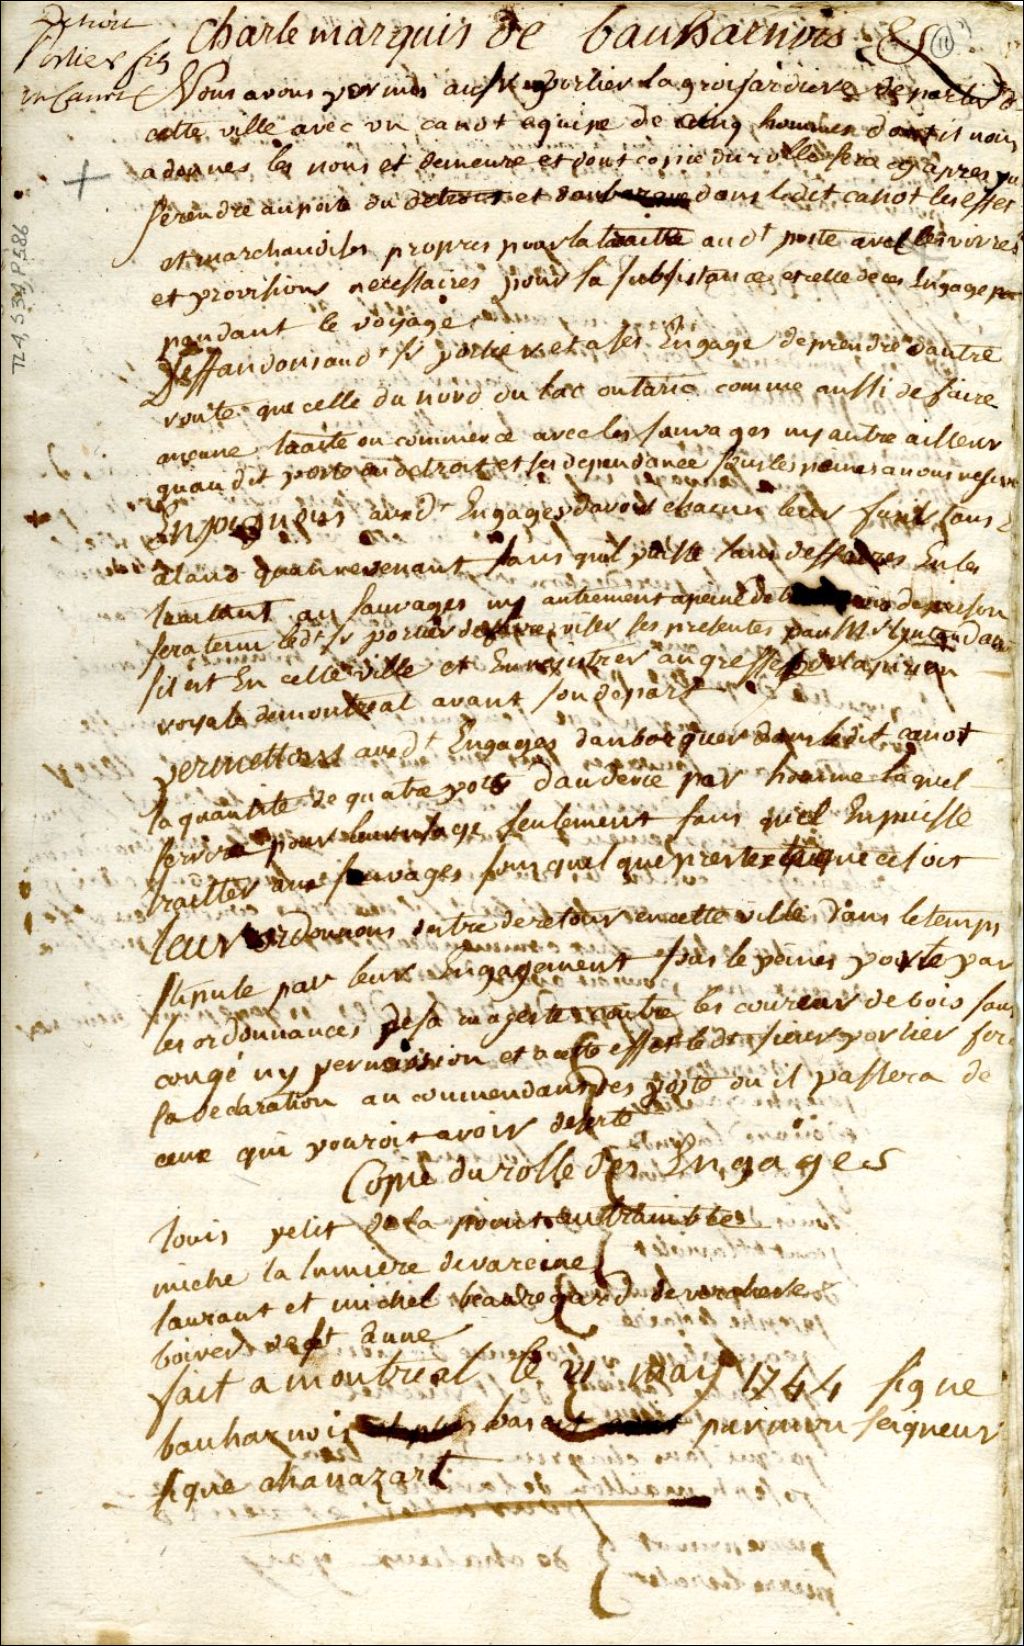 Detroit
Porlier fils
un Canot
Charle marquis de bauharnois &c
11
Nous avons permis au Sr porlier la groisardiere de partir de
cette ville avec un canot equipé de cinq hommes dont il nous
a donnes les noms et demeure et dont copie du rolle sera cy apres pour
se rendre au poste du detroit et danbarquer dans ledit canot les effets
et marchandises propres pour la traitte audt poste avec les vivres
et provisions necessaires pour sa subsistance et celle de ces Engagé
pendant le voyage
Deffandons audt Sr porlier et a ses Engagé de prendre dautre
route que celle du nord du lac ontario comme aussi de faire
aucune traite ou commerce avec les sauvages ny autre ailleur
quau dit poste du detroit et ses dependance sous les peines a nous reserve
Enjoignons audt Engages davoir chacun leur fusil tans
alant quan revenant sans quil puisse sans deffaires En les
traittant au sauvages ny autrement a peine de prison
sera tenu ledt Sr porlier de faire viser ses presentes par Mr Lyntandan
sil est En cette ville et Enregistrer au greffe de la
royale de montreal avant son depart
permettons audt Engages danbarquer dans ledit canot
la quantité de quatre pots daudevie par homme laquel
servira pour leur usage seulement sans quil En puisse
traitter aux sauvages sous quel que prestexte que ce soit
leur ordonnons destre de retour en cette ville dans le temps
stipulé par leur Engagement sous le peines porté par
les ordonnances de sa magesté contre les coureur de bois sans
congé ny permission et a cette effet ledt sieur porlier fera
sa declaration au commendans des poste ou il passera de
ceux qui pouroit avoir deserté
Copie du rolle des Engages
louis petit de la pointe au trambles
miche la lumiere de vareine
laurant et michel beauregard de verchere
boiverd de st anne
fait a montreal le 21 may 1744 signe
bauharnois et plus bas par mon seigneur
signe chanazart
TL4, S34, P586